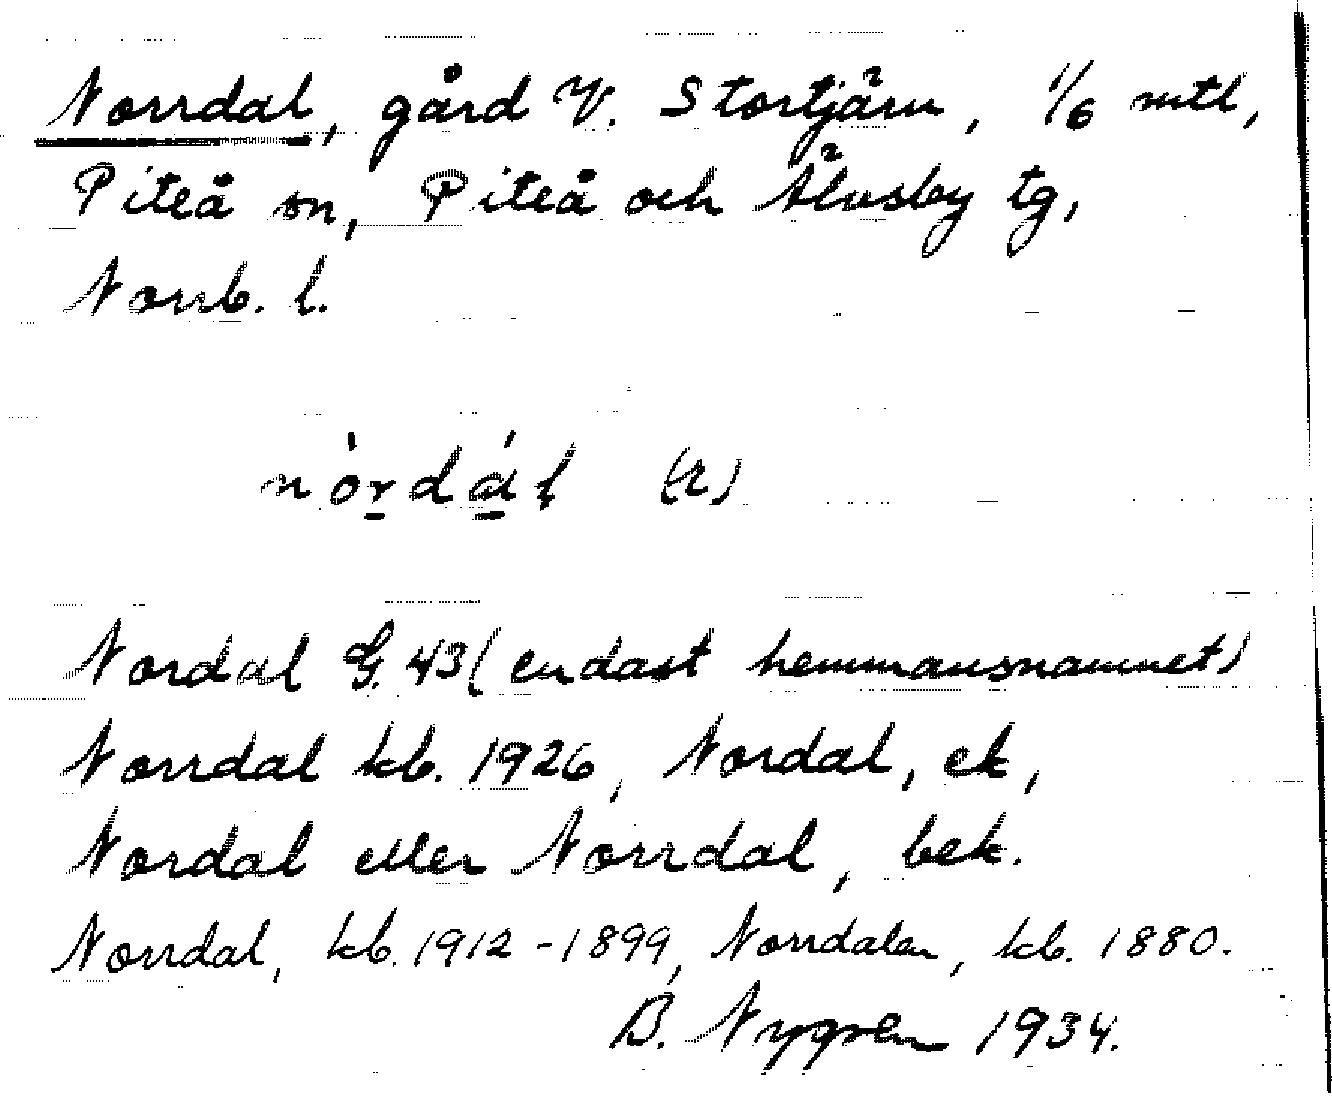 Norrdal, gård V. Stortjärn, 1/6 mtl,
Piteå sn, Piteå och Älvsby tg,
Norrb. l.
nòrdál (r)
Nordal G. 43 (endast hemmansnamnet)
Norrdal kb. 1926, Nordal, ek,
Nordal eller Norrdal, bek.
Norrdal, kb. 1912-1899, Norrdalen, kb. 1880.
B. Nygren 1934.